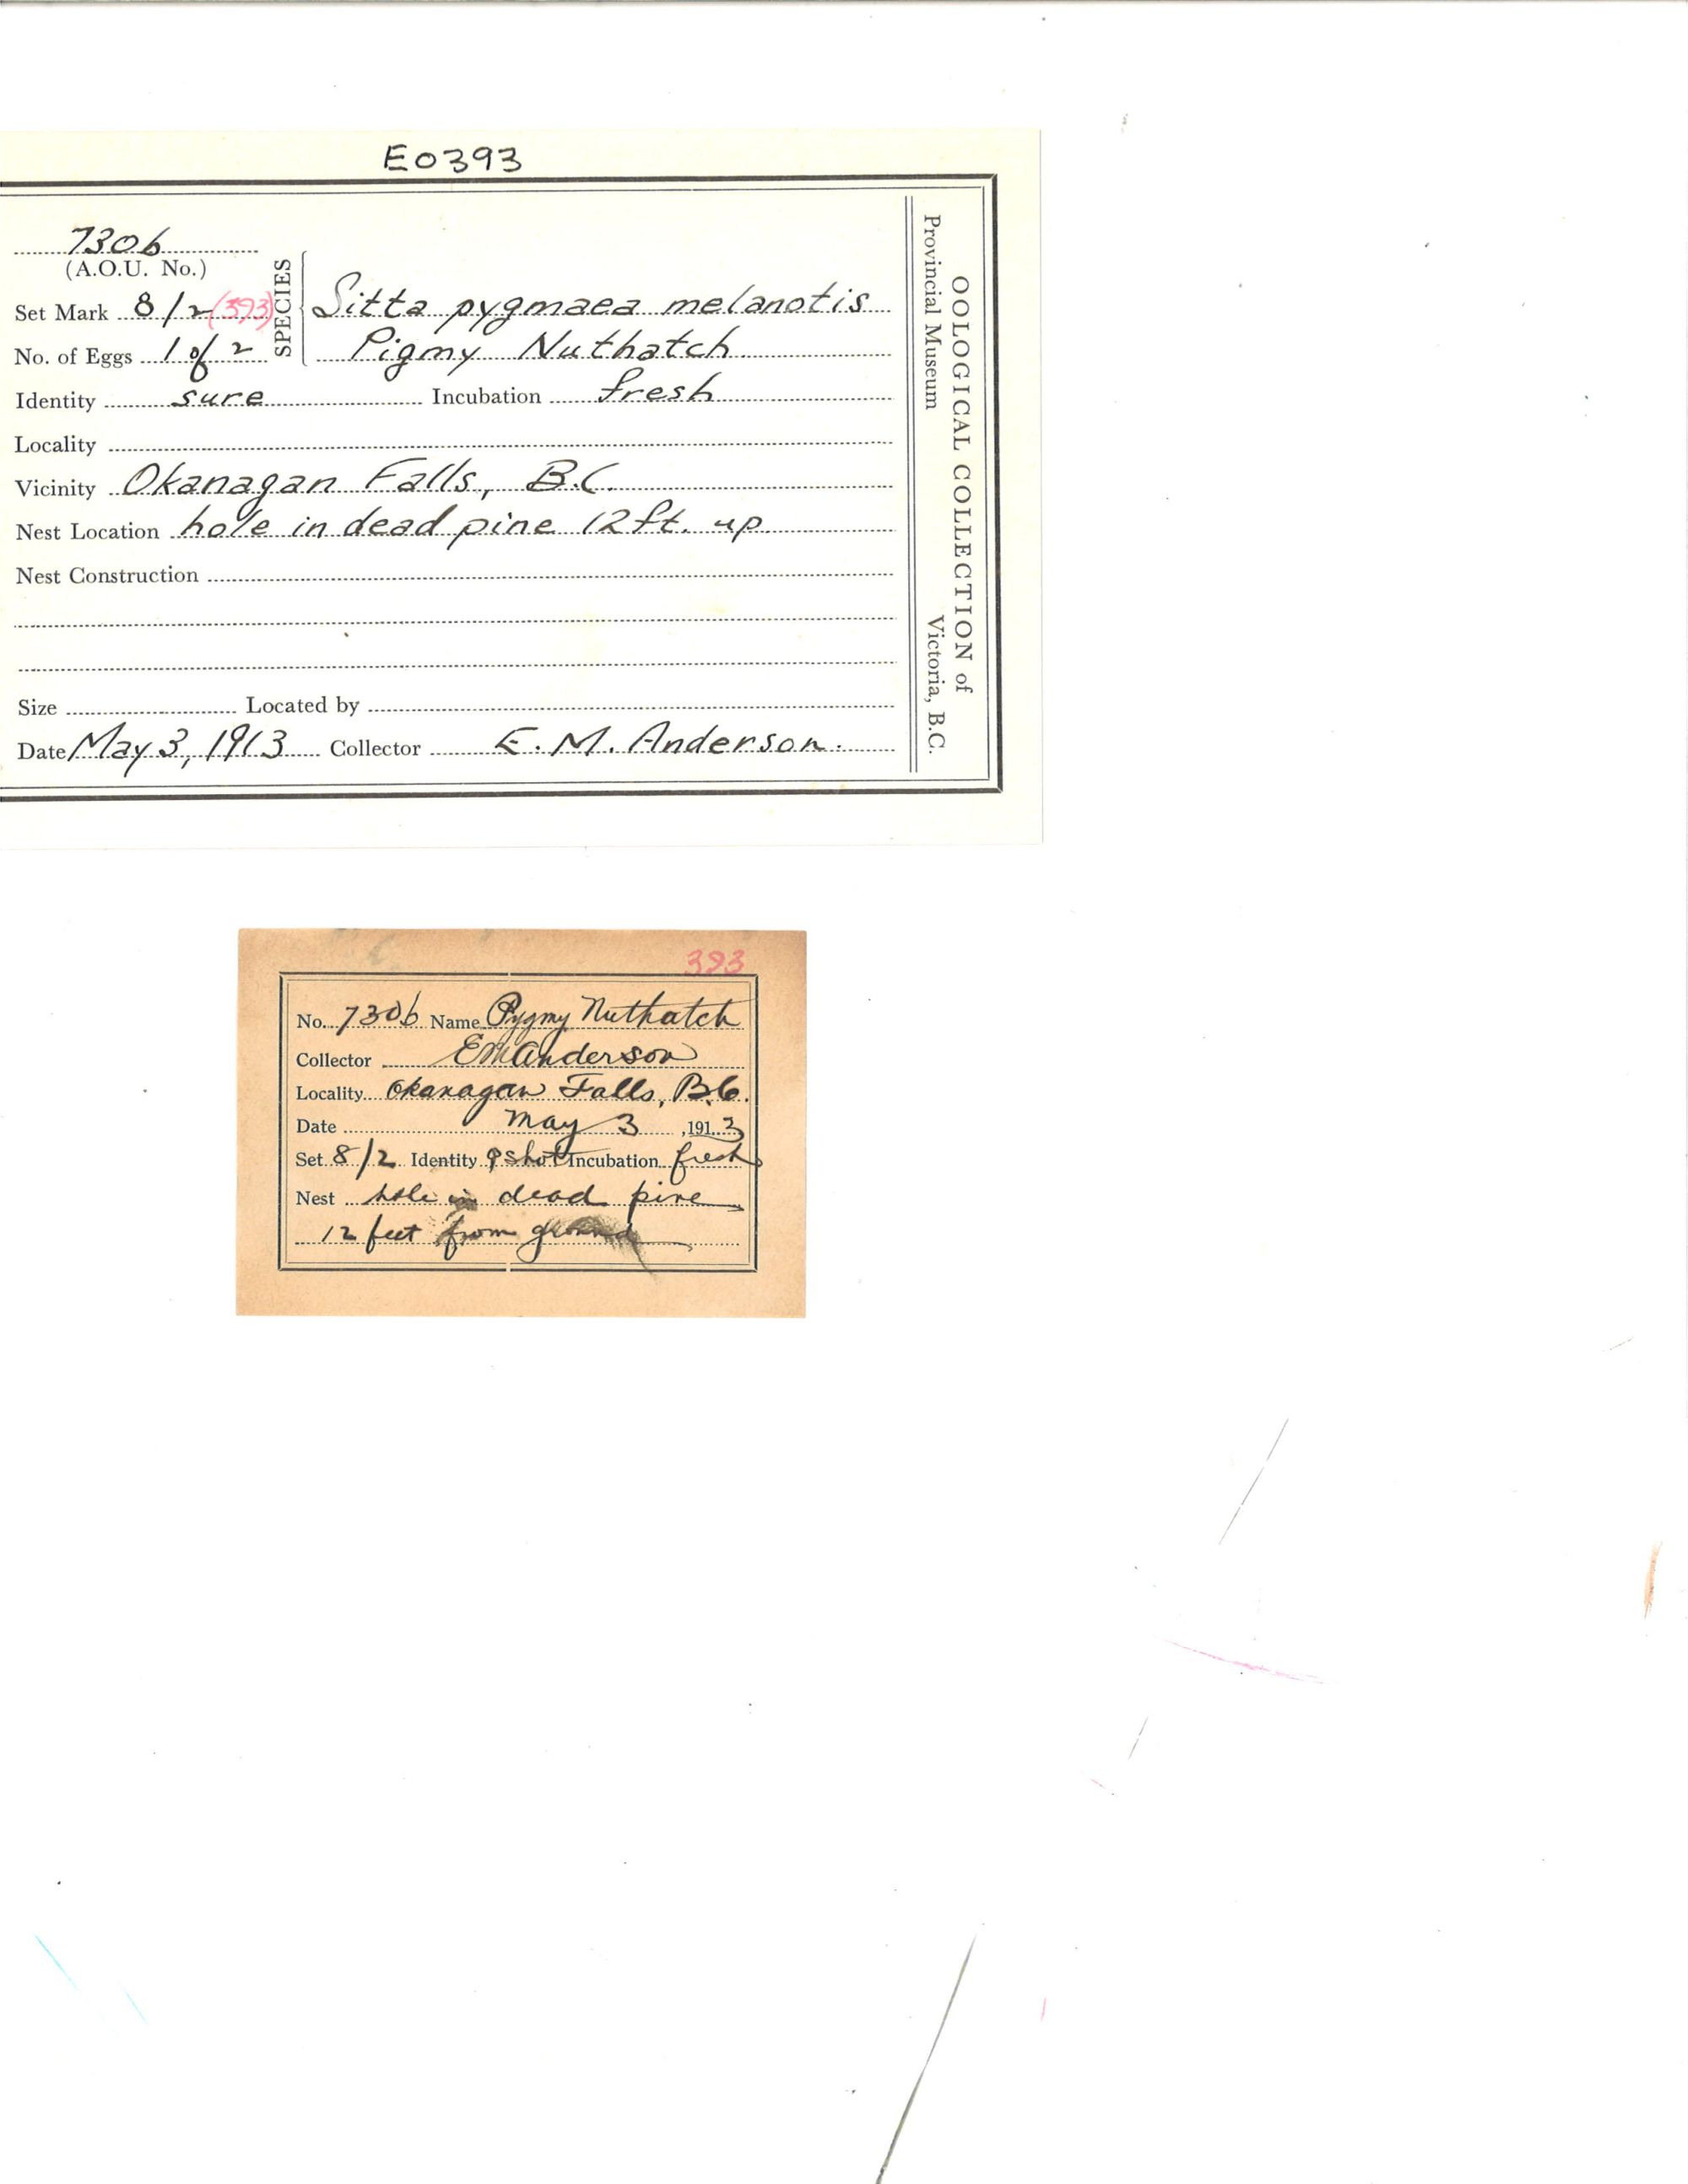 E0393
730b
(A.O.U. No.)
SPECIES
Set Mark 8/2 (393) Sitta pygmaea melanotis
No. of Eggs 1 of 2 Pigmy Nuthatch
Identity sure Incubation fresh
Locality
Vicinity Okanagan Falls, B.C.
Nest Location hole in dead pine 12 ft. up
Nest Construction
Size Located by
Date May 3, 1913 Collector E. M. Anderson.
OOLOGICAL COLLECTION of
Provincial Museum Victoria, B.C.
393
No. 730b Name Pygmy Nuthatch
Collector EM Anderson
Locality Okanagan Falls, B.C.
Date May 3, 1913
Set 8/2 Identity ♀ shot Incubation fresh
Nest hole in dead pine
12 feet from ground